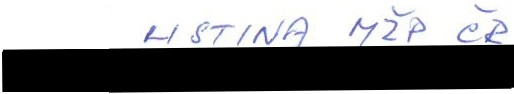 LISTINA MŽP ČR